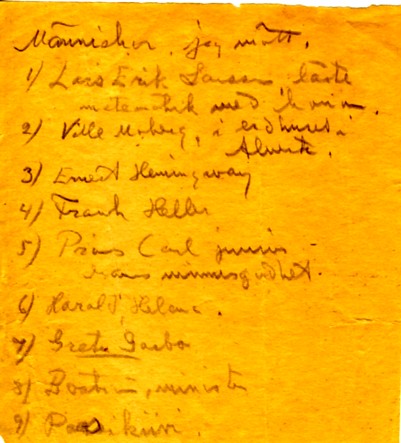 Människor, jag mött.
1) Lars Erik Larsson, läste
matematik med honom.
2) Ville Moberg, i
3) Ernest Hemingway
4) Frank Heller
5) Prins Carl junior
hans
6) Harald, Helena.
7) Greta Garbo
8) minister
9) Paasikivi.